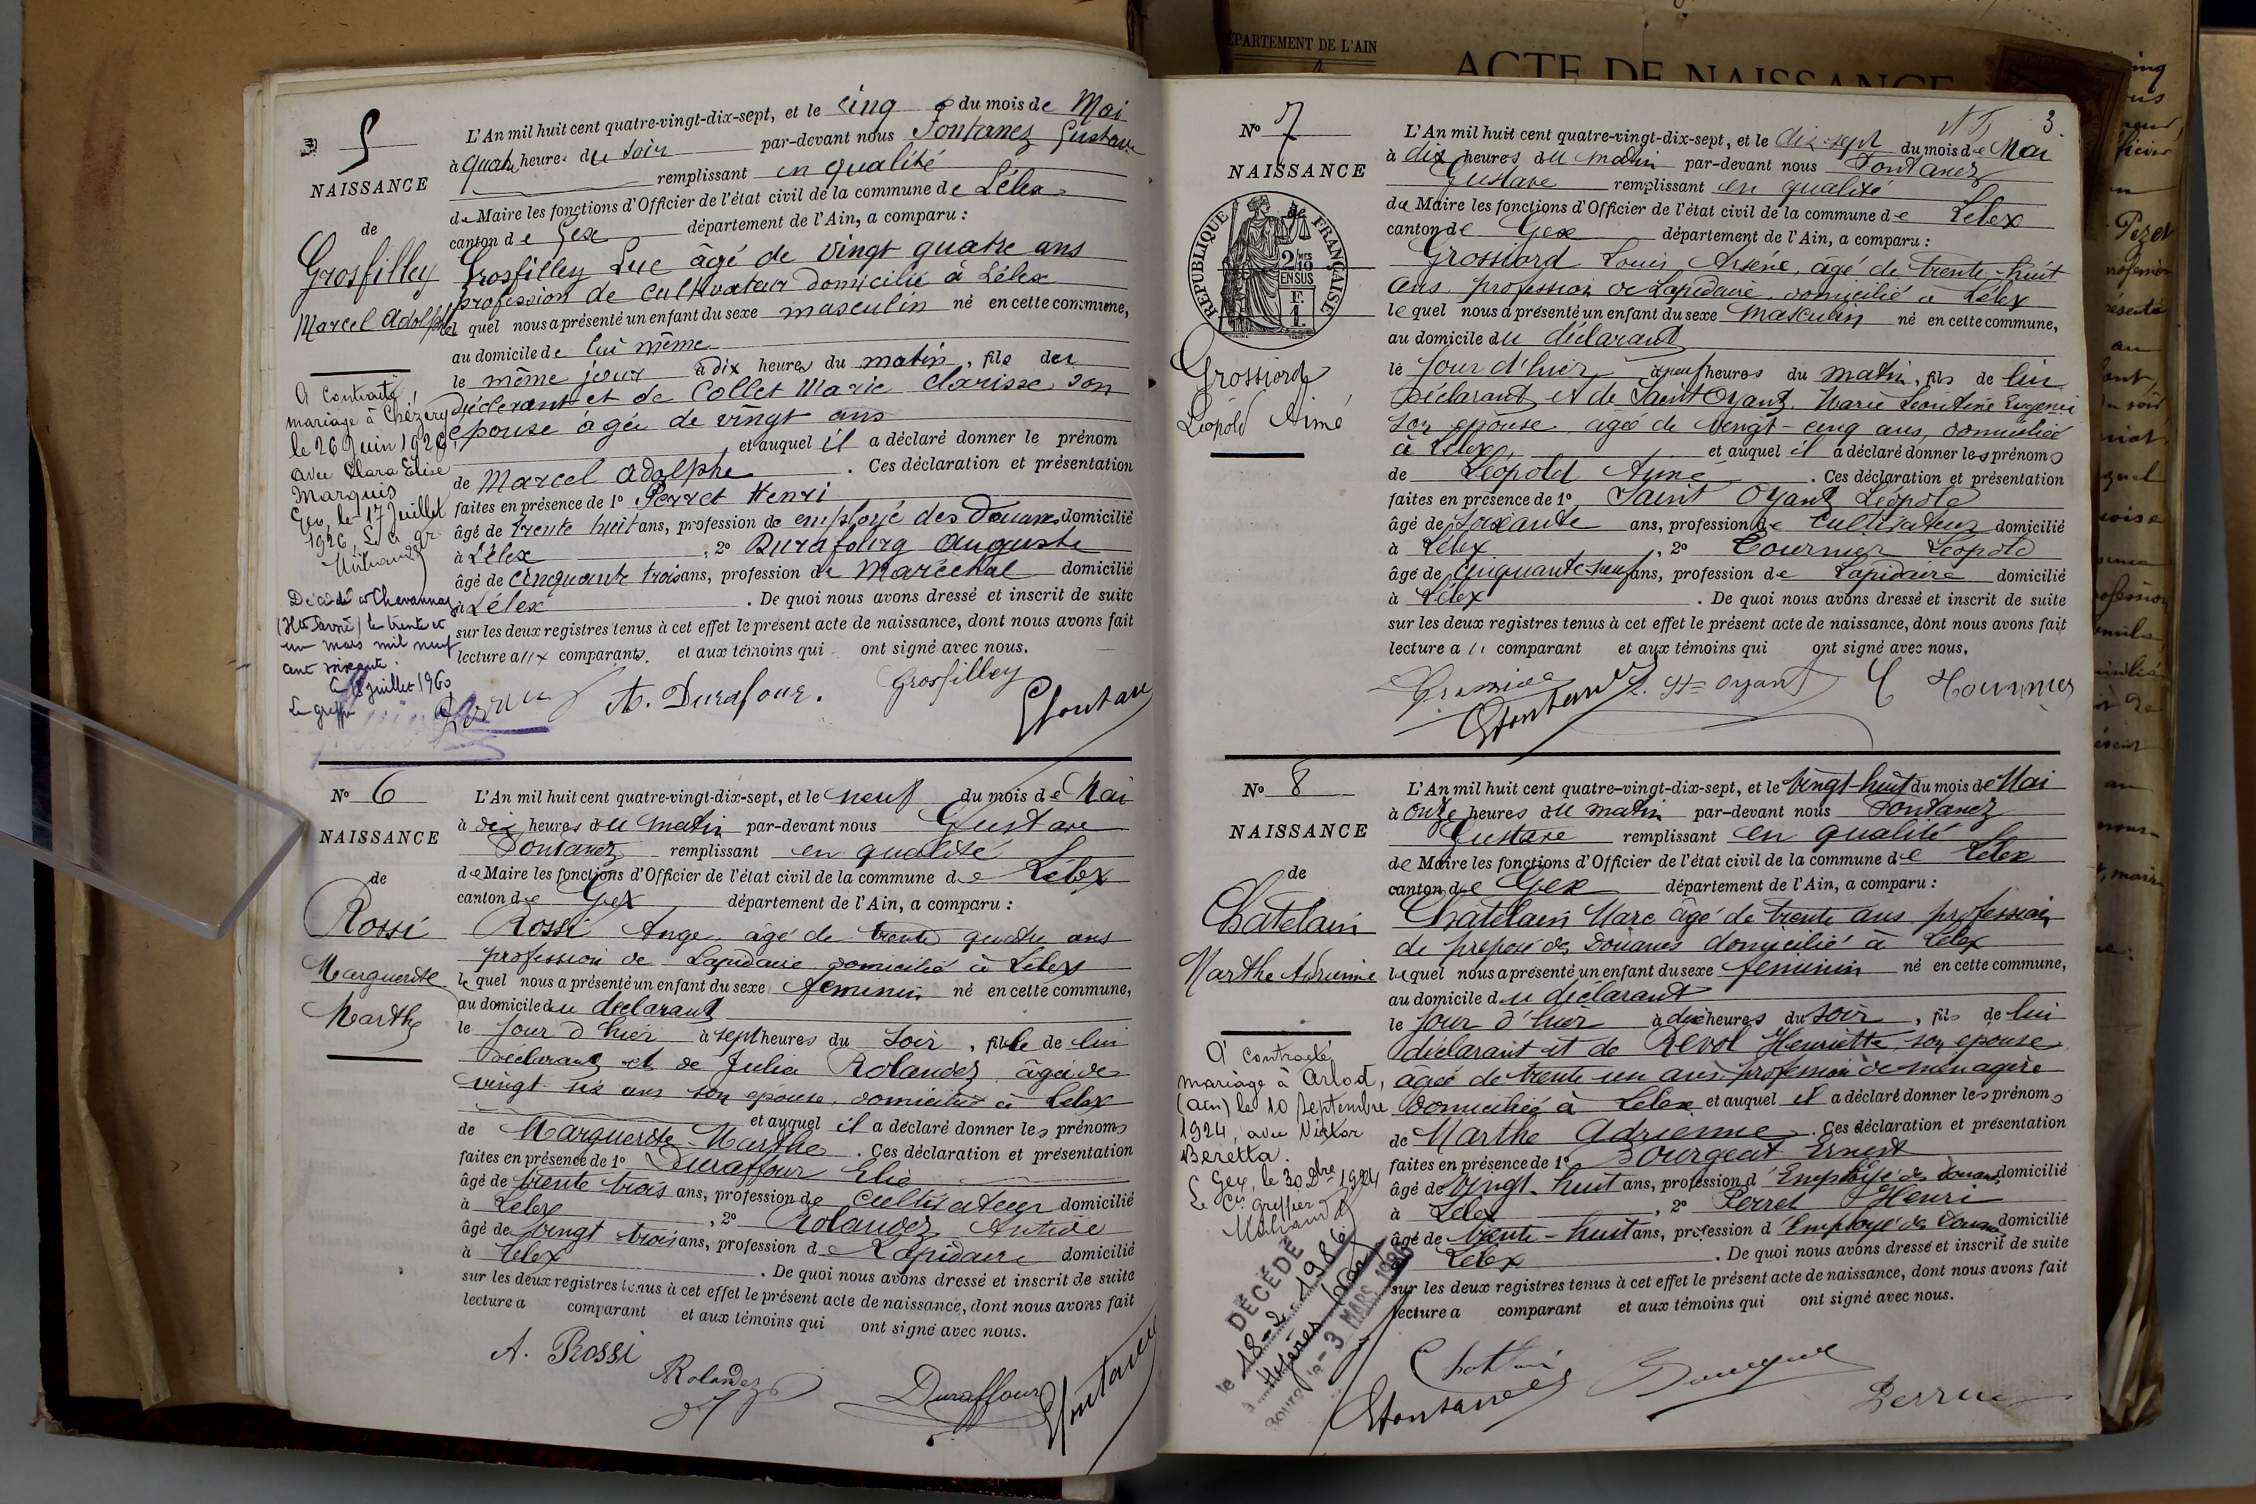 5
NAISSANCE
de
Grosfilley
Marcel Adolphe
A contracté
mariage à Chézery
le 26 Juin 1926
avec Clara Elise
Marquis
Gex, le 17 Juillet
1926, Le Cis gr.
Décédé à Chevannaz
(Hte Savoie) le trente et
un mars mil neuf
cent soixante.
Le 18 juillet 1960
Le greffier
L'An mil huit cent quatre-vingt-dix-sept, et le cinq du mois de Mai
à quatre heures du soir par-devant nous Fontanez Gustave
remplissant en qualité
de Maire les fonctions d'Officier de l'état civil de la commune de Lélex
canton de Gex département de l'Ain, a comparu :
Grosfilley Luc âgé de vingt quatre ans
profession de cultivateur domicilié à Lélex
lequel nous a présenté un enfant du sexe masculin né en cette commune,
au domicile de lui même
le même jour à dix heures du matin, fils des
déclarant et de Collet Marie Clarisse son
épouse âgée de vingt ans
et auquel il a déclaré donner le prénom
de Marcel Adolphe . Ces déclaration et présentation
faites en présence de 1° Perret Henri
âgé de trente huit ans, profession de employé des Douanes domicilié
à Lélex , 2° Durafourg Auguste
âgé de cinquante trois ans, profession de Maréchal domicilié
à Lélex . De quoi nous avons dressé et inscrit de suite
sur les deux registres tenus à cet effet le présent acte de naissance, dont nous avons fait
lecture aux comparants et aux témoins qui ont signé avec nous.
A. Durafour. Grosfilley
GFontanez
No 6
NAISSANCE
de
Rossi
Marguerite
Marthe
L'An mil huit cent quatre-vingt-dix-sept, et le neuf du mois de Mai
à dix heures du matin par-devant nous Gustave
Fontanez remplissant en qualité
de Maire les fonctions d'Officier de l'état civil de la commune de Lélex
canton de Gex département de l'Ain, a comparu :
Rossi Ange, âgé de trente quatre ans
profession de Lapidaire domicilié à Lélex
lequel nous a présenté un enfant du sexe feminin né en cette commune,
au domicile du déclarant
le jour d'hier à sept heures du soir, fille de lui
déclarant et de Julia Rolandez âgée de
vingt six ans son épouse, domiciliée à Lélex
et auquel il a déclaré donner les prénoms
de Marguerite Marthe . Ces déclaration et présentation
faites en présence de 1° Duraffour Elie
âgé de trente trois ans, profession de cultivateur domicilié
à Lélex , 2° Rolandez Antide
âgé de vingt trois ans, profession de Lapidaire domicilié
à Lélex . De quoi nous avons dressé et inscrit de suite
sur les deux registres tenus à cet effet le présent acte de naissance, dont nous avons fait
lecture a comparant et aux témoins qui ont signé avec nous.
A. Rossi
Rolandez
Duraffour
GFontanez
DÉPARTEMENT DE L'AIN
ACTE DE NAISSANCE
3.
No 7
NAISSANCE
de
RÉPUBLIQUE FRANÇAISE
2/10 MES
EN SUS
F.
1.
Grossiord
Léopold Aimé
L'An mil huit cent quatre-vingt-dix-sept, et le dix-sept du mois de Mai
à dix heures du matin par-devant nous Fontanez
Gustave remplissant en qualité
de Maire les fonctions d'Officier de l'état civil de la commune de Lélex
canton de Gex département de l'Ain, a comparu :
Grossiord Louis Arsène, âgé de trente-huit
ans profession de Lapidaire, domicilié à Lélex
lequel nous a présenté un enfant du sexe masculin né en cette commune,
au domicile du déclarant
le jour d'hier à neuf heures du matin, fils de lui
déclarant et de Saint Oyant Marie Léontine Eugénie
son épouse âgée de vingt-cinq ans, domiciliée
à Lélex, et auquel il a déclaré donner les prénoms
de Léopold Aimé . Ces déclaration et présentation
faites en présence de 1° Saint Oyant Léopold
âgé de soixante ans, profession de cultivateur domicilié
à Lélex , 2° Tournier Léopold
âgé de cinquante-neuf ans, profession de Lapidaire domicilié
à Lélex . De quoi nous avons dressé et inscrit de suite
sur les deux registres tenus à cet effet le présent acte de naissance, dont nous avons fait
lecture au comparant et aux témoins qui ont signé avec nous.
GFontanez L. St Oyant L Tournier
No 8
NAISSANCE
de
Chatelain
Marthe Adrienne
A contracté
mariage à Arlod,
(Ain) le 10 septembre
1924, avec Victor
Beretta.
Gex, le 30 Dbre 1924
Le Cis greffier
DÉCÉDÉ
le 18-2-1986
à
Bourg le -3 MARS 1986
L'An mil huit cent quatre-vingt-dix-sept, et le Vingt-huit du mois de Mai
à onze heures du matin par-devant nous Fontanez
Gustave remplissant en qualité
de Maire les fonctions d'Officier de l'état civil de la commune de Lélex
canton de Gex département de l'Ain, a comparu :
Chatelain Marc âgé de trente ans profession
de préposé des Douanes domicilié à Lélex
lequel nous a présenté un enfant du sexe feminin né en cette commune,
au domicile du déclarant
le jour d'hier à dix heures du soir, fils de lui
déclarant et de Revol Henriette son épouse
âgée de trente un ans profession de ménagère
domiciliée à Lélex et auquel il a déclaré donner les prénoms
de Marthe Adrienne . Ces déclaration et présentation
faites en présence de 1° Bourgeat Ernest
âgé de vingt-huit ans, profession d'Employé des Douanes domicilié
à Lélex , 2° Perret Henri
âgé de trente-huit ans, profession d'Employé des Douanes domicilié
à Lélex . De quoi nous avons dressé et inscrit de suite
sur les deux registres tenus à cet effet le présent acte de naissance, dont nous avons fait
lecture a comparant et aux témoins qui ont signé avec nous.
GFontanez